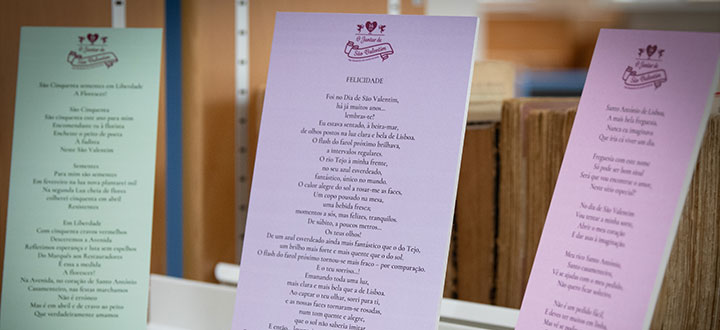 O Jantar de
São Valentim
São Cinquenta sementes em Liberdade
A Florescer!
São Cinquenta
São cinquenta este ano para mim
Encomendante vs à florista
Encheste o peito de poeta
À fadista
Neste São Valentim
Sementes
Para mim são sementes
Em fevereiro na lua nova plantarei mil
Na segunda Lua cheia de flores
colherei cinquenta em abril
Resistentes
Em Liberdade
Com cinquenta cravos vermelhos
Desceremos a Avenida
Refletimos esperança e luta sem espelhos
Do Marquês aos Restauradores
É essa a medida
A florescer!
Na Avenida, no coração de Santo António
Casamenteiro, nas festas marchamos
Não é erróneo
Mas é em abril e de cravo ao peito
Que verdadeiramente amamos
O Jantar de
São Valentim
FELICIDADE
Foi no Dia de São Valentim,
há já muitos anos...
lembras-te?
Eu estava sentado, à beira-mar,
de olhos pontos na luz clara e bela de Lisboa.
O flash do farol próximo brilhava,
a intervalos regulares.
O rio Tejo à minha frente,
no seu azul esverdeado,
fantástico, único no mundo.
O calor alegre do sol a rosar-me as faces,
Um copo pousado na mesa,
uma bebida fresca;
momentos a sós, mas felizes, tranquilos.
De súbito, a poucos metros...
Os teus olhos!
De um azul esverdeado ainda mais fantástico que o do Tejo,
um brilho mais forte e mais quente que o do sol.
O flash do farol próximo tornou-se mais fraco - por comparação.
E o teu sorriso...!
Emanando toda uma luz,
mais clara e mais bela que a de Lisboa.
Ao captar o teu olhar, sorri para ti,
e as nossas faces tornaram-se rosadas,
num tom quente e alegre,
que o sol não saberia imitar.
E então,
O Jantar de
São Valentim
Santo António de Lisboa,
A mais bela freguesia,
Nunca eu imaginava
Que iria cá viver um dia.
Freguesia com este nome
Só pode ser bom sinal
Será que vou encontrar o amor,
Neste sítio especial?
No dia de São Valentim
Vou tentar a minha sorte,
Abrir o meu coração
E dar asas à imaginação.
Meu rico Santo António,
Santo casamenteiro,
Vê se ajudas com o meu pedido,
Não quero ficar solteiro.
Não é um pedido fácil,
E devo ser muitos em linha,
Mas vê se